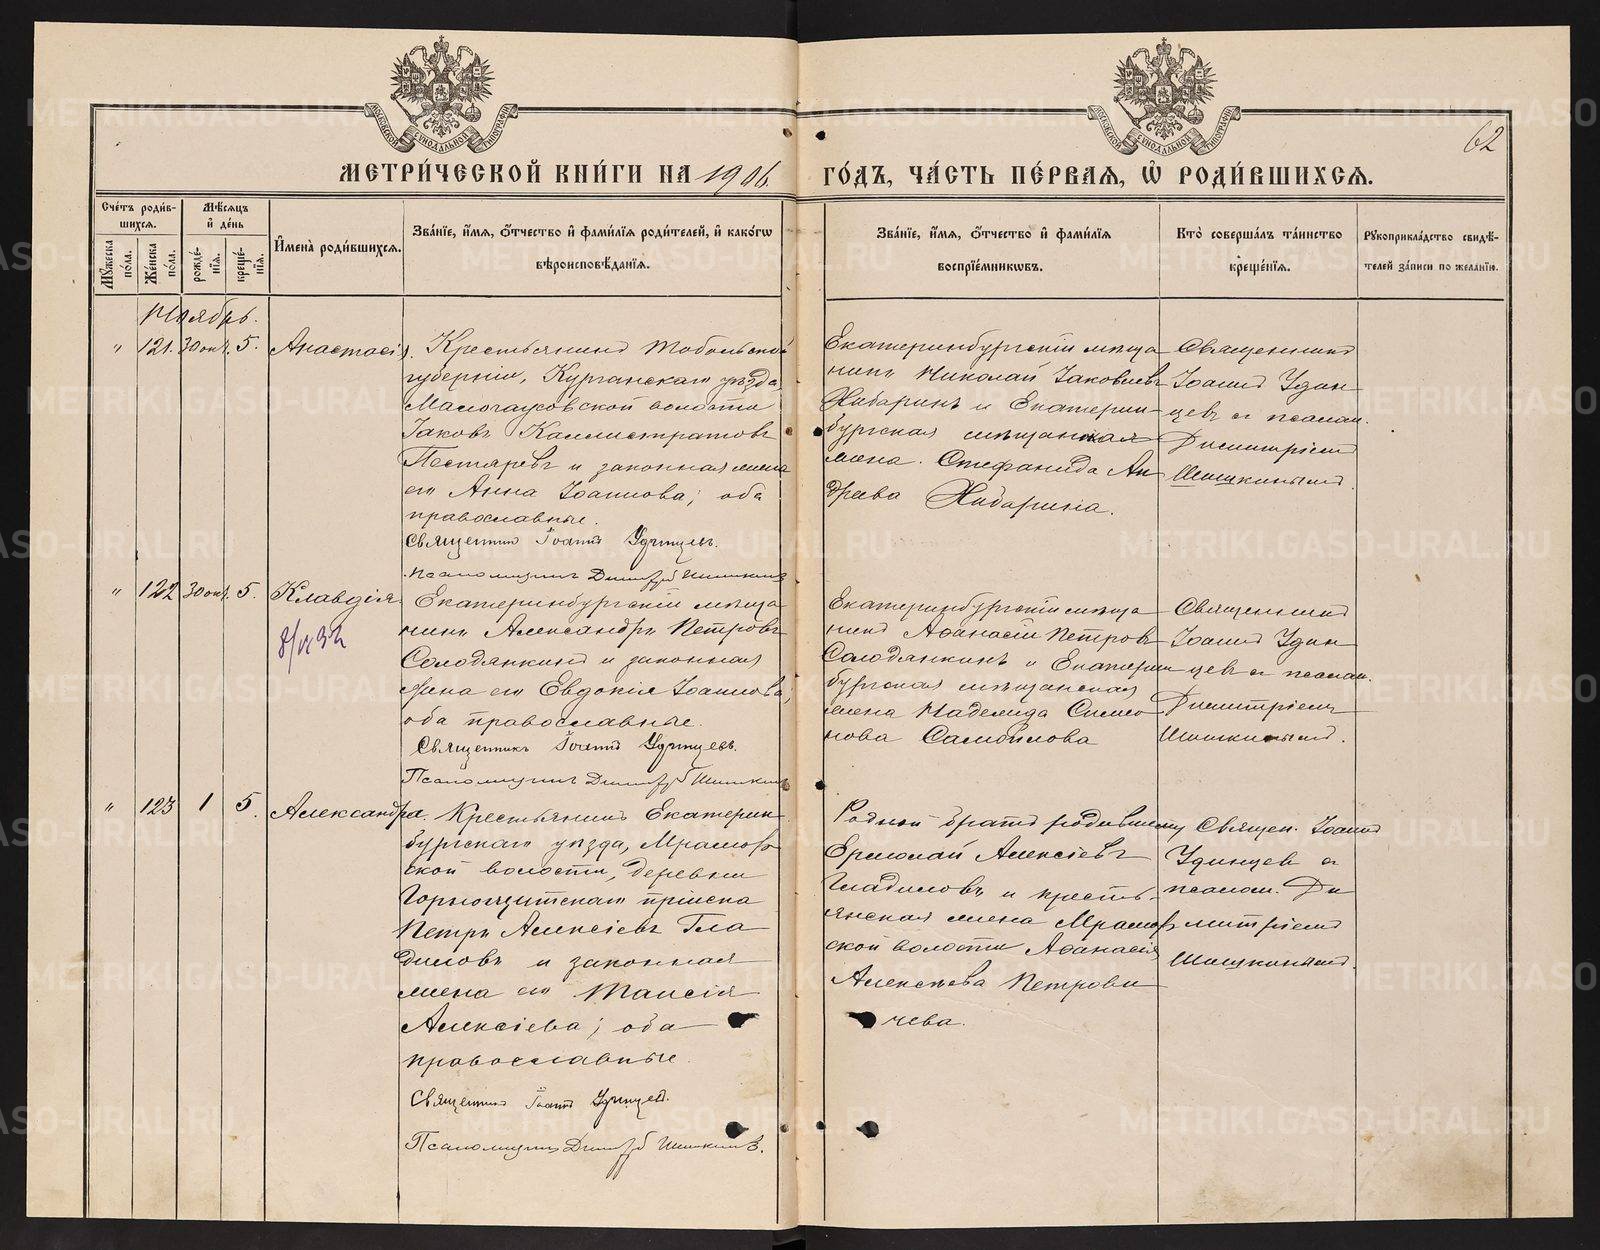 МЕТРИ́ЧЕСКОЙ КНИ́ГИ НА 1906.
ГО́ДЪ, ЧА́СТЬ ПЕ́РВАѦ, Ѡ҆ РОДИ́ВШИХСѦ.
62
Сче́тъ роди́в-
шихсѧ.
Мꙋ́жеска по́ла.
Же́нска по́ла.
Мѣ́сѧцъ
и҆ де́нь
рожде́-
нїѧ.
креще́-
нїѧ.
И҆мена̀ роди́вшихсѧ.
Зва́нїе, и҆́мѧ, ѻ҆́тчество и҆ фами́лїѧ роди́телей, и҆ како́гѡ
вѣроисповѣ́данїѧ.
Зва́нїе, и҆́мѧ, ѻ҆́тчество и҆ фами́лїѧ
воспрїе́мникѡвъ.
Кто̀ соверша́лъ та́инство
креще́нїѧ.
Рꙋкоприкла́дство свидѣ́-
телей за́писи по жела́нїю.
Ноябрь.
" 121. 30 окт. 5. Анастасія.
Крестьянинъ Тобольской
губерніи, Курганскаго уѣзда,
Малочаусовской волости
Іаковъ Каллистратовъ
Пестяревъ и законная жена
его Анна Іоаннова; оба
православные.
Священникъ Іоаннъ Удинцевъ.
Псаломщикъ Димитрій Шишкинъ
Екатеринбургскій мѣща
нинъ Николай Іаковлевъ
Хибаринъ и Екатерин-
бургская мѣщанская
жена Стефанида Ан
дреева Хибарина.
Священникъ
Іоаннъ Удин
цевъ съ псалом.
Димитріемъ
Шишкинымъ.
" 122 30 окт. 5. Клавдія
Екатеринбургскій мѣща
нинъ Александръ Петровъ
Солодянкинъ и законная
жена его Евдокія Іоаннова;
оба православные.
Священникъ Іоаннъ Удинцевъ.
Псаломщикъ Димитрій Шишкинъ
Екатеринбургскій мѣща
нинъ Афанасій Петровъ
Солодянкинъ и Екатерин
бургская мѣщанская
жена Надежда Симео
нова Самойлова
Священникъ
Іоаннъ Удин
цевъ съ псалом.
Димитріемъ
Шишкинымъ.
" 123 1 5. Александра.
Крестьянинъ Екатерин
бургскаго уѣзда, Мрамор
ской волости, деревни
Горнощитскаго пріиска
Петръ Алексіевъ Гла
диловъ и законная
жена его Таисія
Алексіева; оба
православные.
Священникъ Іоаннъ Удинцевъ.
Псаломщикъ Димитрій Шишкинъ.
Родной братъ родившему
Ермолай Алексіевъ
Гладиловъ и кресть-
янская жена Мрамор
ской волости Афанасія
Алексѣева Петрови
чева.
Священ. Іоаннъ
Удинцев съ
псалом. Ди
митріемъ
Шишкинымъ.